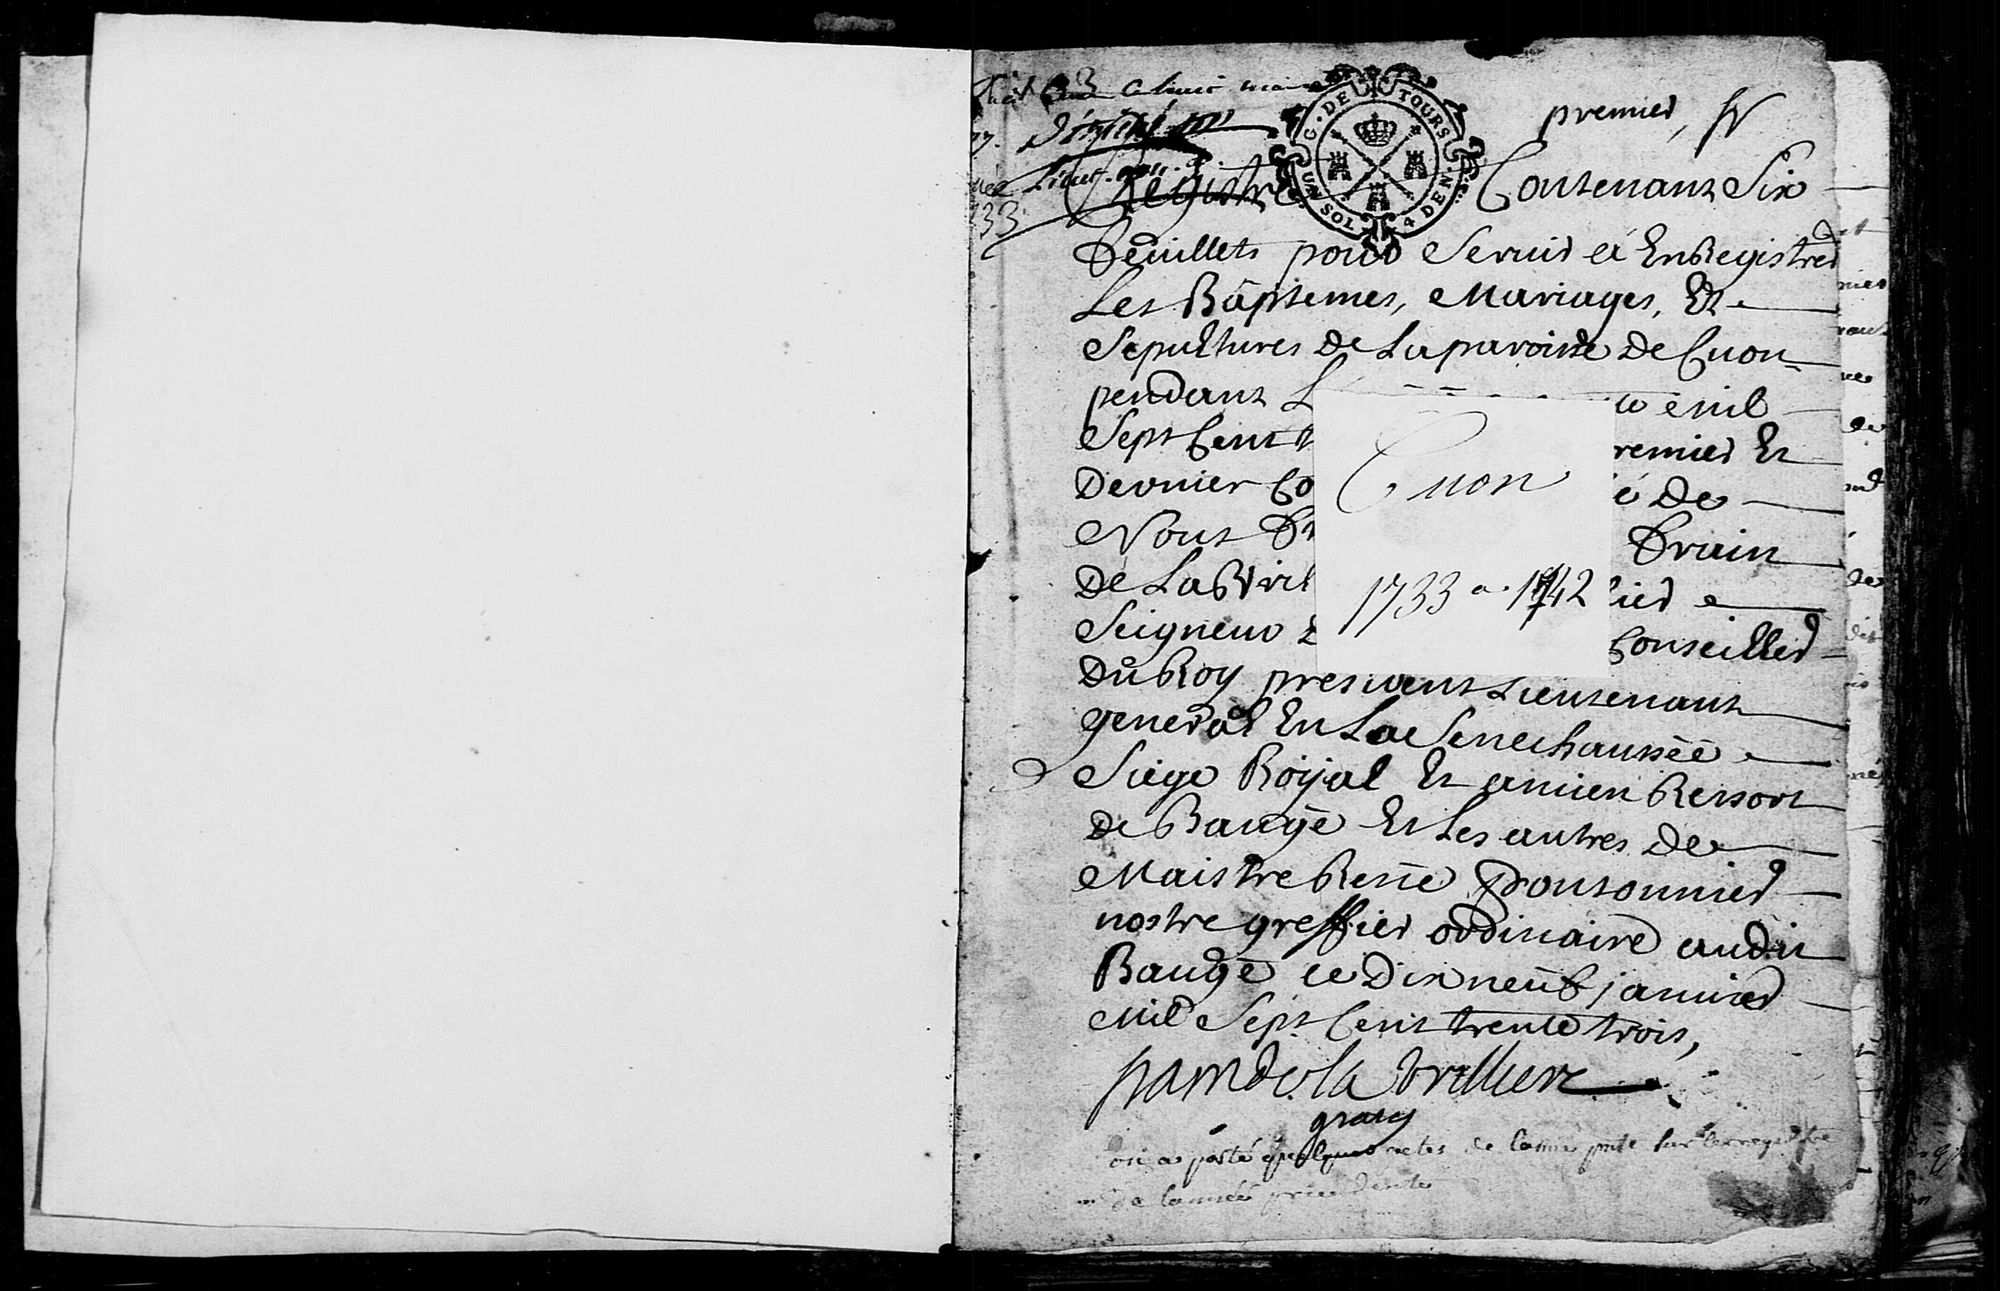 premier,
G. DE TOURS
UN SOL 4 DEN.
Registre Contenant Six
feüillets pour Seruir à EnRegistrer
Les Bâptemes, Mariages, Et
Sepultures de La paroisse de Cuon
pendant L mil
Sept Cent remier Et
Dernier Co é de
Nous frain
De La Vril lier
Seigneur Conseiller
Du Roy president Lieutenant
general En La Senechaussée
Siege Roÿal Et ancien Ressort
de Baugé Et Les autres de
Maistre René poutonnier
nostre greffier ordinaire audit
Baugé ce Dix neuf januier
mil Sept Cent trente trois,
frain de la vrilliere
gratis
on a porté quelques actes de lannée pnte sur le registre
de lannée precedente
Cuon
1733 a 1742